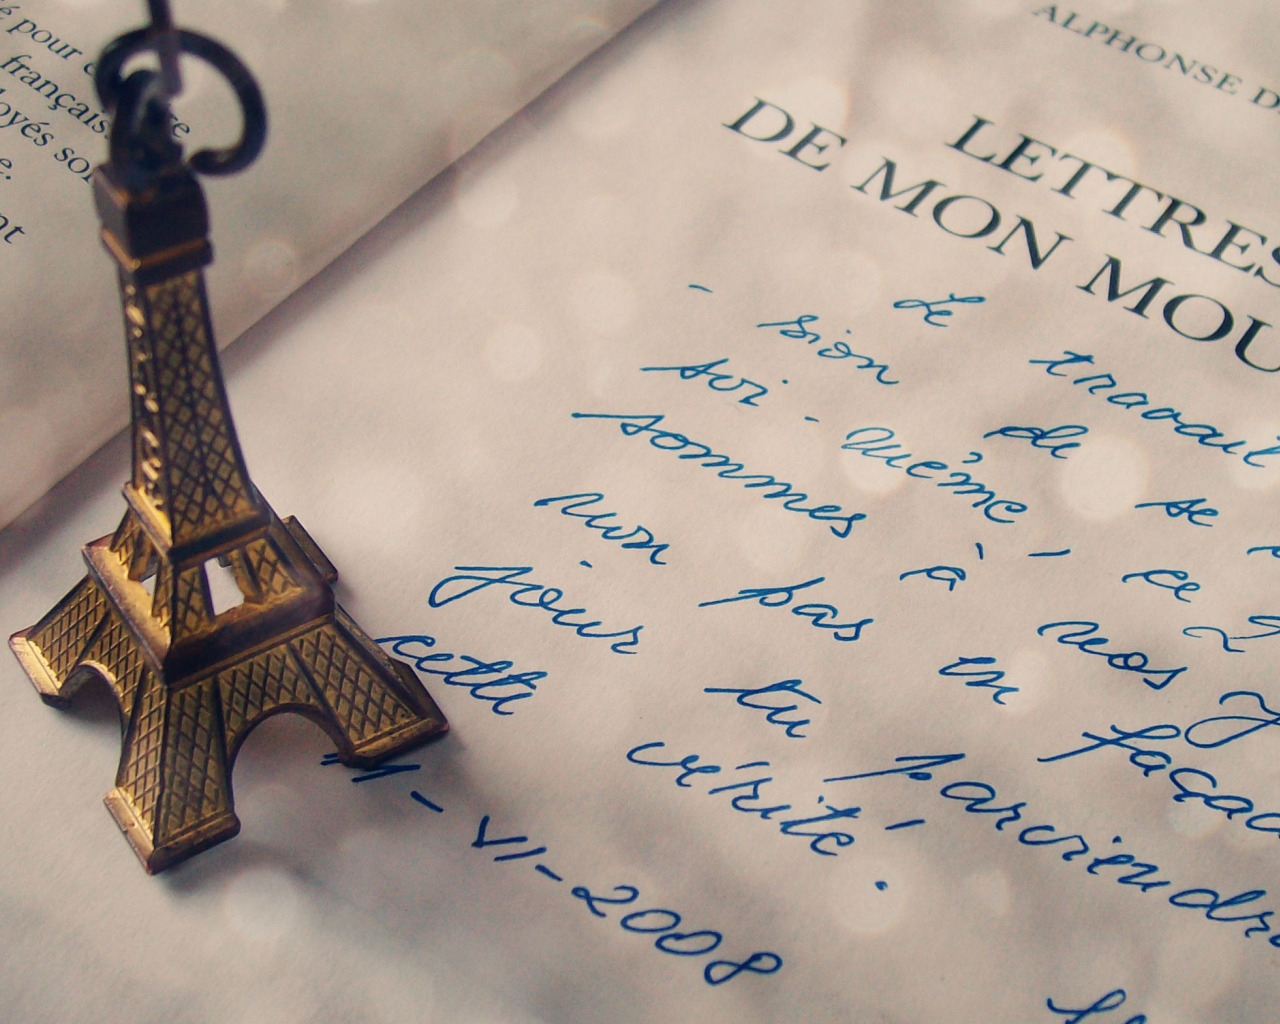 é pour
français
loyés son
e.
nt
ALPHONSE D
LETTRES
DE MON MOU
- Le travail
sion de se
soi-même, ce
sommes à nos
non pas en façad
jour tu parviendr
cette vérité!
11-VI-2008